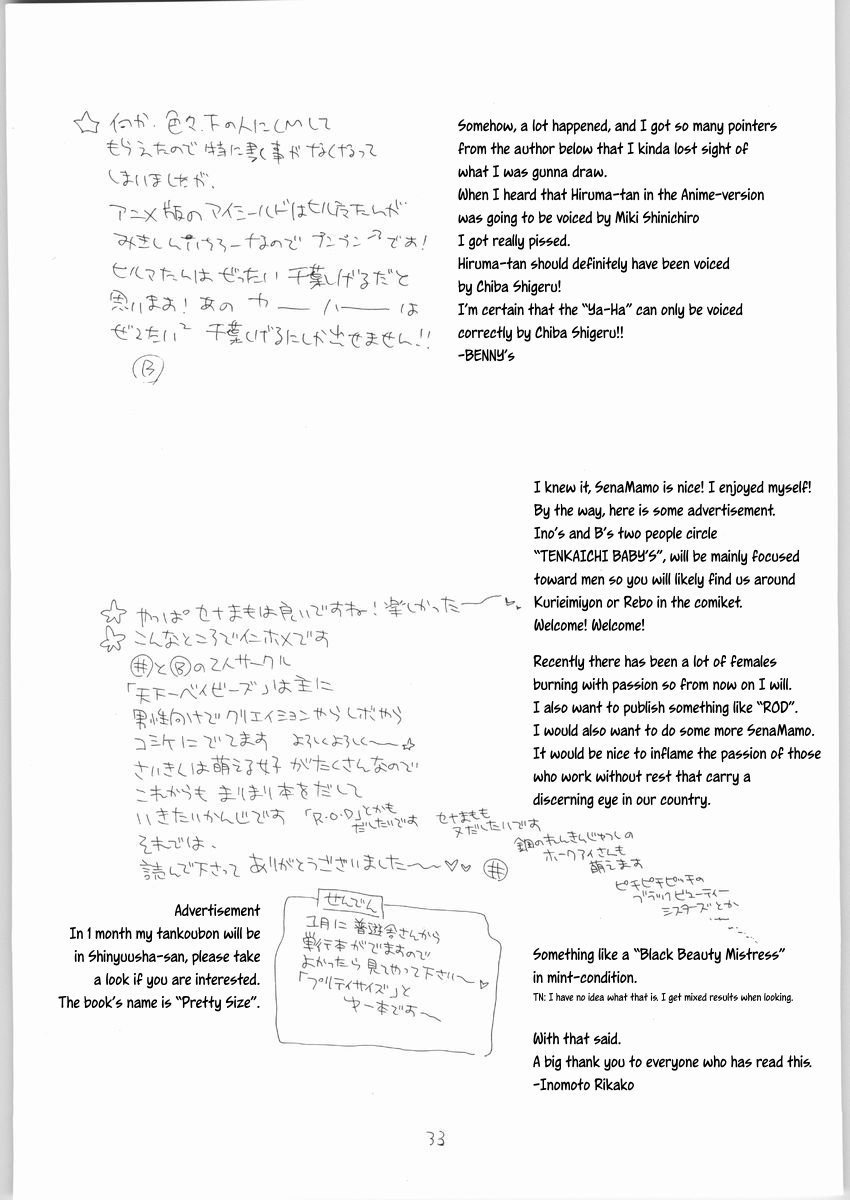 ☆ 何か、色々、下の人にCMして
もらえたので特に書く事がなくなって
しまいましたが、
アニメ版のアイシールドはヒルマたんが
みきしんいちろーなのでプンプンです!
ヒルマたんはぜったい千葉しげるだと
思います!あのヤーハーは
ぜったい² 千葉しげるにしか出せません!!
Ⓑ
Somehow, a lot happened, and I got so many pointers
from the author below that I kinda lost sight of
what I was gunna draw.
When I heard that Hiruma-tan in the Anime-version
was going to be voiced by Miki Shinichiro
I got really pissed.
Hiruma-tan should definitely have been voiced
by Chiba Shigeru!
I'm certain that the "Ya-Ha" can only be voiced
correctly by Chiba Shigeru!!
-BENNY's
I knew it, SenaMamo is nice! I enjoyed myself!
By the way, here is some advertisement.
Ino's and B's two people circle
"TENKAICHI BABY'S", will be mainly focused
toward men so you will likely find us around
Kurieimiyon or Rebo in the comiket.
Welcome! Welcome!
Recently there has been a lot of females
burning with passion so from now on I will.
I also want to publish something like "ROD".
I would also want to do some more SenaMamo.
It would be nice to inflame the passion of those
who work without rest that carry a
discerning eye in our country.
☆ やっぱセナまもは良いですね!楽しかったー
☆ こんなところで
と Ⓑ の2人サークル
「天下一ベイビーズ」は主に
男性向けでクリエイションやらレボやら
コミケにでてます よろしくよろしく〜☆
さいきんは萌える女子がたくさんなので
これからも まりまり本をだして
いきたいかんじです 「R・O・D」とかも
だしたいです セナまもも
又だしたいです
鋼のれんきんじゅつしの
ホークアイさんも
萌えます
ピチピチピッチの
ブラックビューティー
シスターズとか
それでは、
読んで下さって ありがとうございました〜〜♡♡
せんでん
1月に普遊舎さんから
単行本がでますので
よかったら見てやって下さい〜♡
「プリティサイズ」と
ゆー本です〜
Advertisement
In 1 month my tankoubon will be
in Shinyuusha-san, please take
a look if you are interested.
The book's name is "Pretty Size".
Something like a "Black Beauty Mistress"
in mint-condition.
TN: I have no idea what that is. I get mixed results when looking.
With that said.
A big thank you to everyone who has read this.
-Inomoto Rikako
33